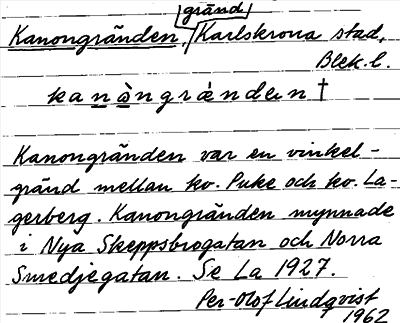 gränd
Kanongränden, Karlskrona stad,
Blek. l.
kanòngrànden †
Kanongränden var en vinkel-
gränd mellan kv. Puke och kv. La-
gerberg. Kanongränden mynnade
i Nya Skeppsbrogatan och Norra
Smedjegatan. Se La 1927.
Per-Olof Lindqvist
1962